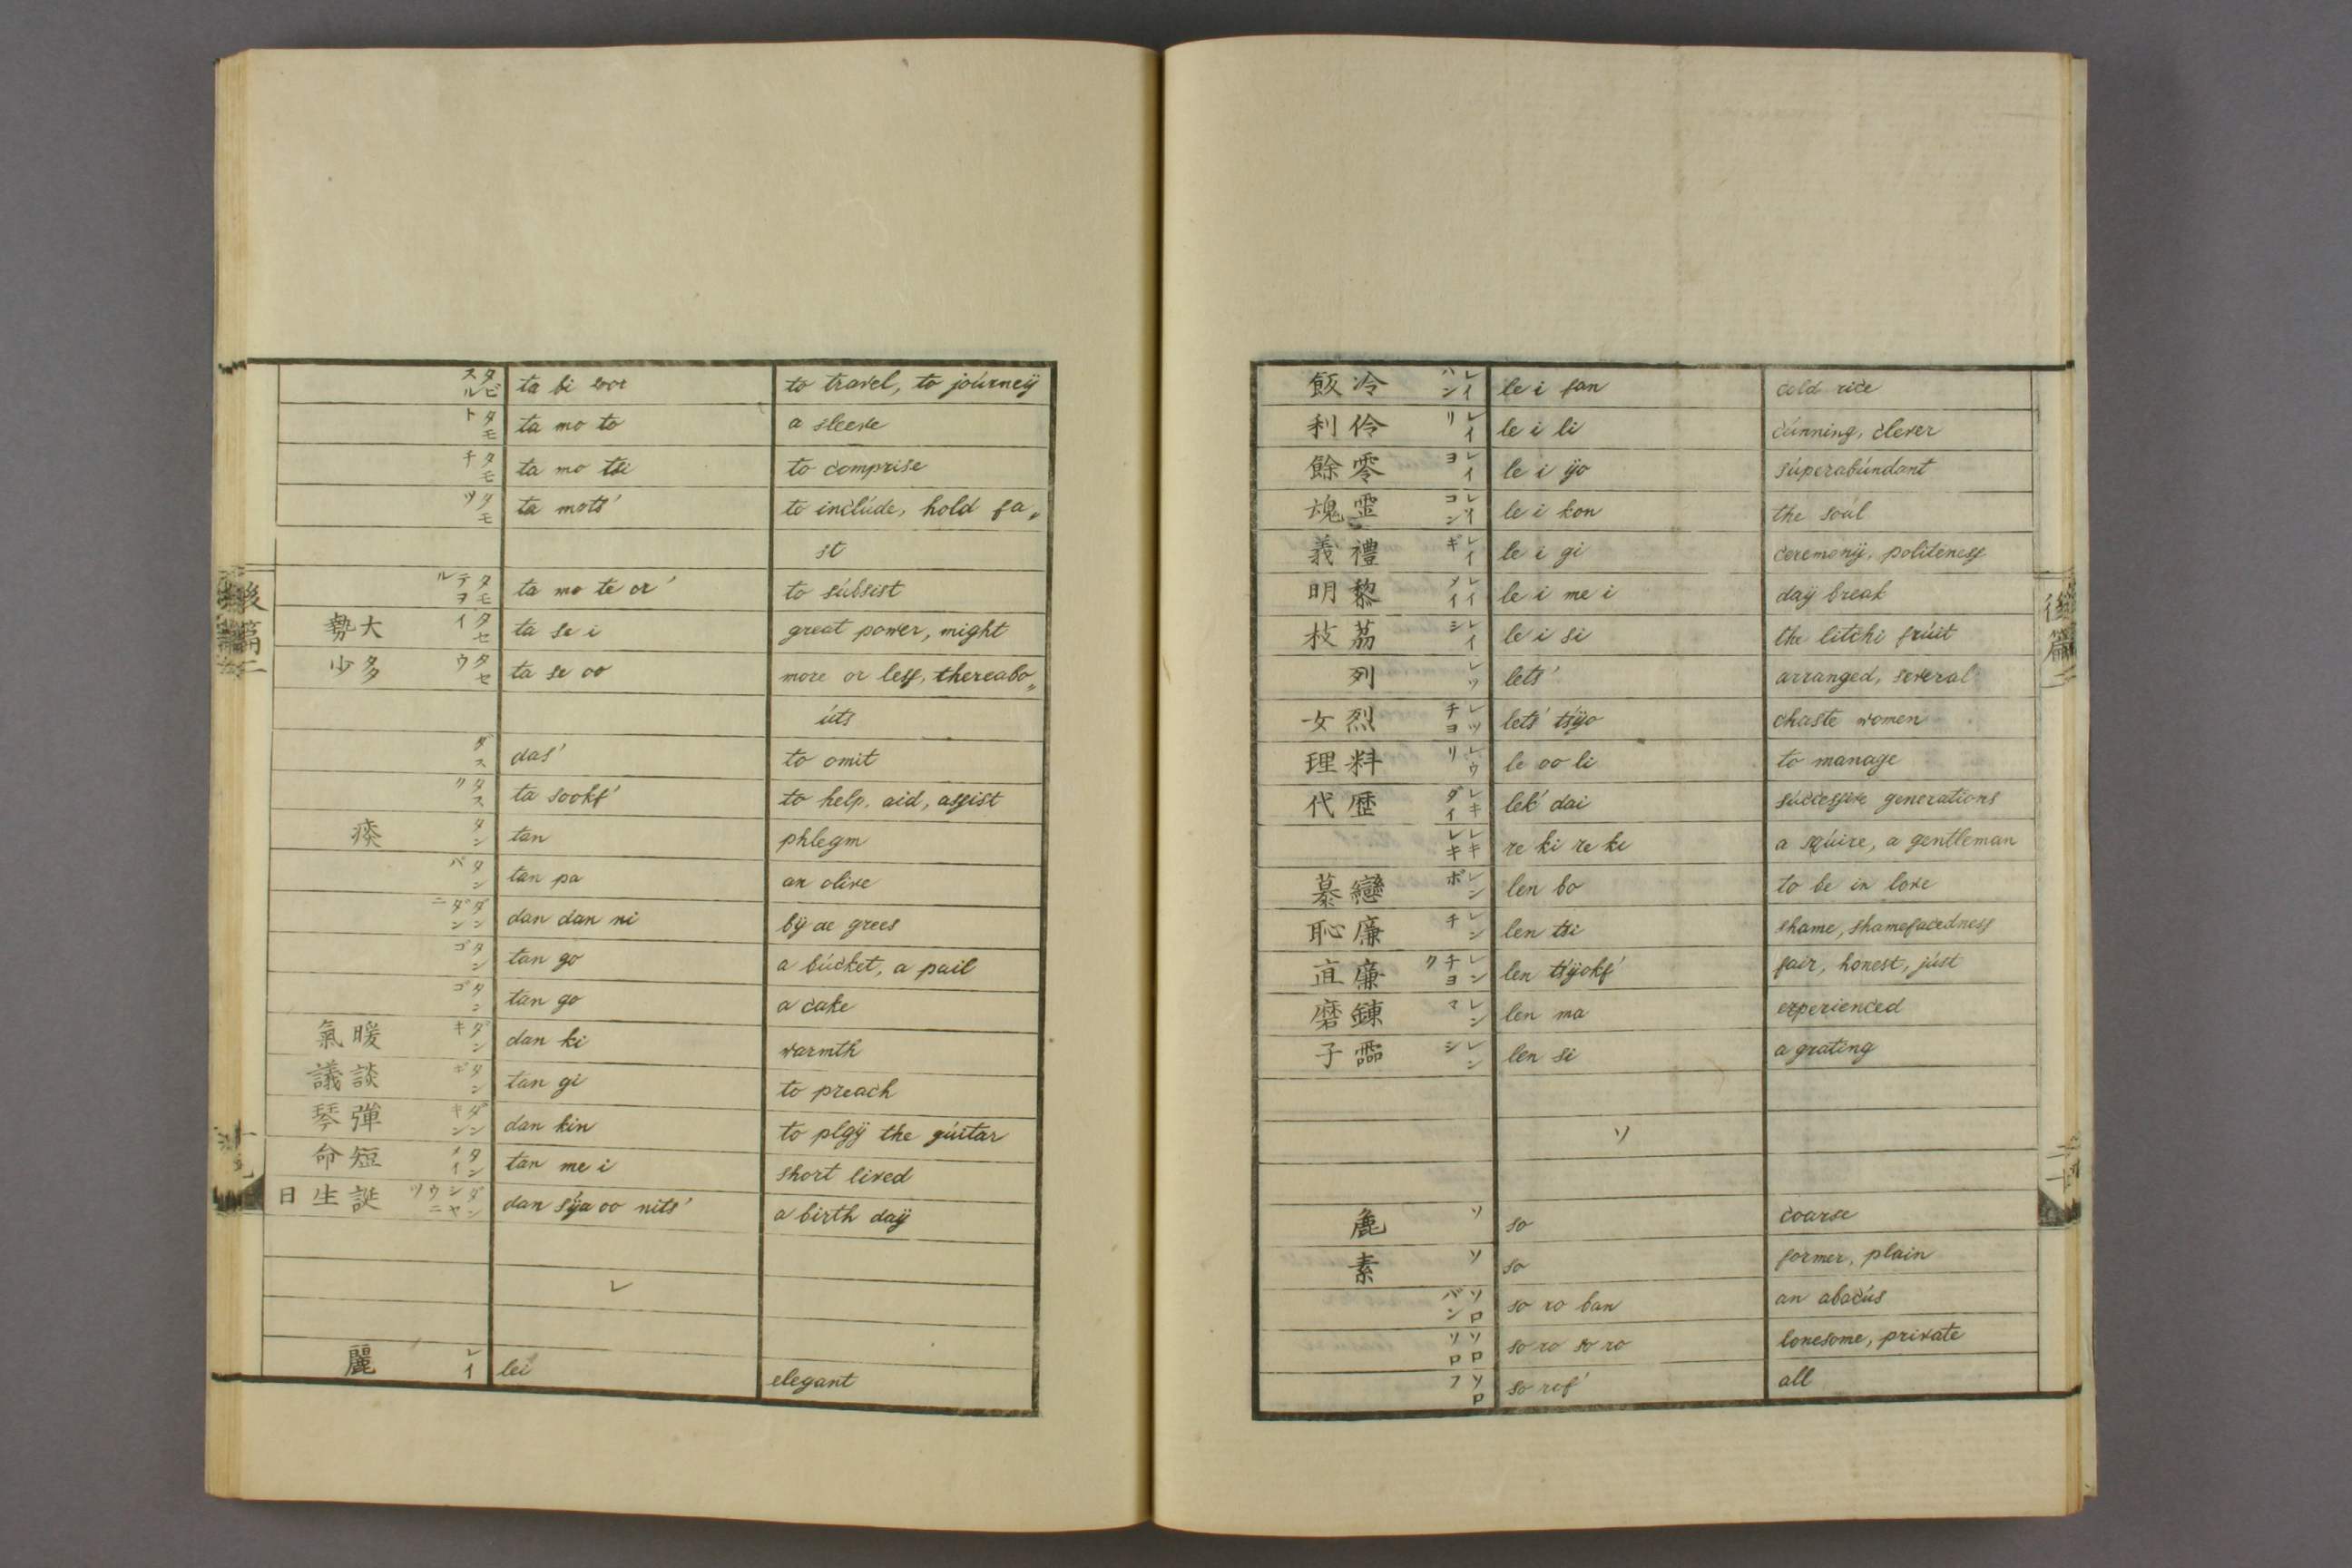 タビスル ta bi soor to travel, to joúrneÿ
タモト ta mo to a sleeve
タモチ ta mo tsi to comprise
タモツ ta mots' to inclúde, hold fa〃
st
タモテヲル ta mo te or' to súbsist
勢大 タセイ ta se i great power, might
少多 タセウ ta se oo more or less, thereabo〃
úts
ダス das' to omit
タスク ta sookf' to help, aid, assist
痰 タン tan phlegm
タンパ tan pa an olive
ダンダンニ dan dan ni bÿ de grees
タンゴ tan go a búcket, a pail
タンゴ tan go a cake
氣暖 ダンキ dan ki warmth
議談 タンギ tan gi to preach
琴彈 ダンキン dan kin to plaÿ the gúitar
命短 タンメイ tan me i short lived
日生誕 ダンシヤウニツ dan s'ÿa oo nits' a birth daÿ
レ
麗 レイ lei elegant
後篇二
十九
飯冷 レイハン le i fan cold rice
利伶 レイリ le i li cúnning, clever
餘零 レイヨ le i ÿo súperabúndant
魂霊 レイコン le i kon the soúl
義禮 レイギ le i gi ceremonÿ, politeness
明黎 レイメイ le i me i daÿ break
枝荔 レイシ le i si the litchi frúit
列 レツ lets' arranged, several
女烈 レツチヨ lets' ts'ÿo chaste women
理料 レウリ le oo li to manage
代歷 レキダイ lek' dai súccessive generations
レキレキ re ki re ki a sqúire, a gentleman
慕戀 レンボ len bo to be in love
恥廉 レンチ len tsi shame, shamefacedness
直廉 レンチヨク len ts'ÿokf' fair, honest, júst
磨錬 レンマ len ma experienced
子櫺 レンシ len si a grating
ソ
麁 ソ so coarse
素 ソ so former, plain
ソロバン so ro ban an abacús
ソロソロ so ro so ro lonesome, private
ソロフ so rof' all
後篇二
二十